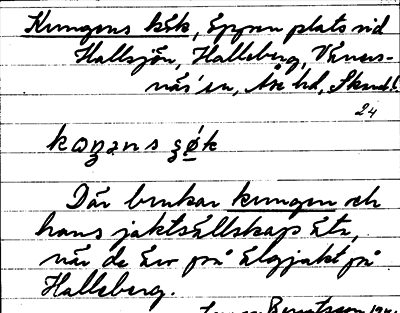 Kungens kök, öppen plats vid
Hallsjön, Halleberg, Väners-
näs sn, Åse hd, Skarabl.
24
kɔŋəns ʒøk
Där brukar kungen och
hans jaktsällskap äta,
när de är på älgjakt på
Halleberg.
Bengtsson